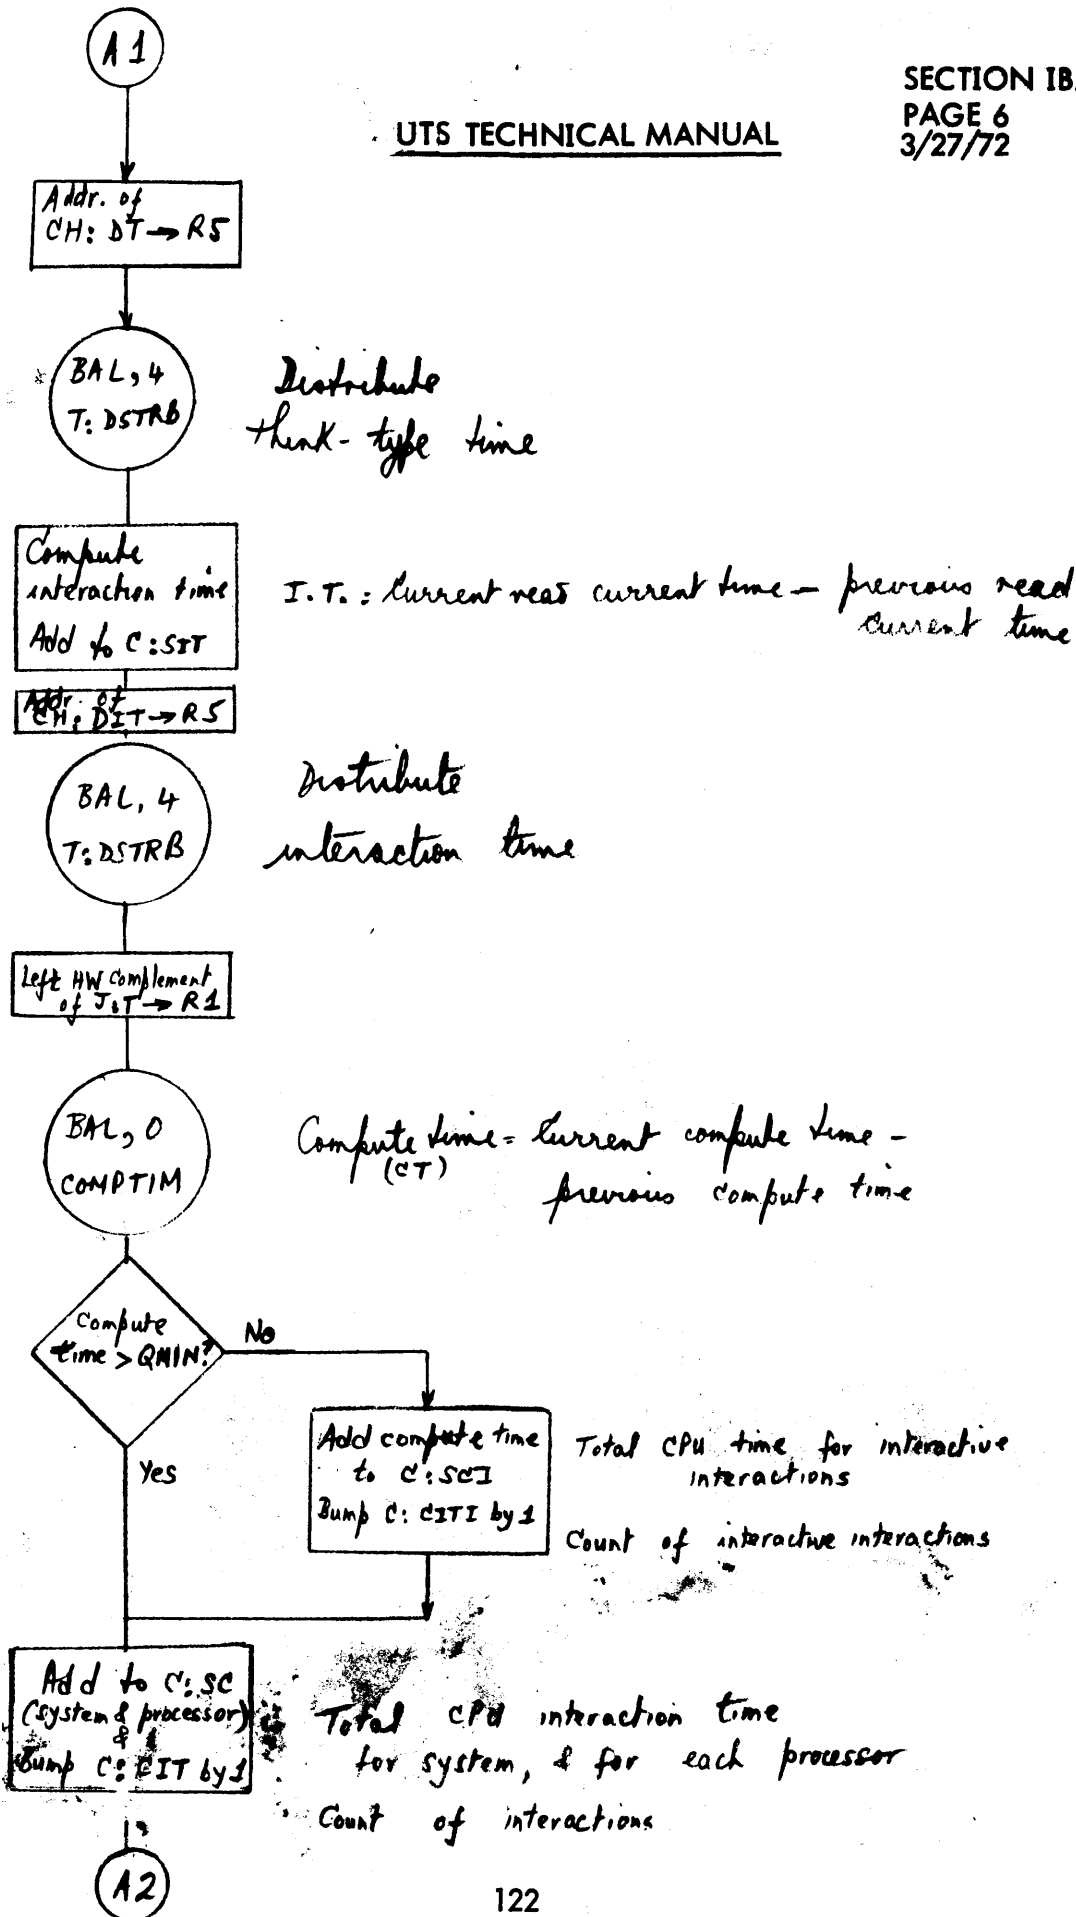 A1
SECTION IB.
PAGE 6
3/27/72
UTS TECHNICAL MANUAL
Addr. of
CH: DT → R5
BAL, 4
T: DSTRB
Distribute
think-type time
Compute
interaction time
Add to C:SIT
I.T.: Current read current time - previous read
current time
Addr. of
CH: DIT → R5
BAL, 4
T: DSTRB
Distribute
interaction time
Left HW complement
of J:IT → R1
BAL, 0
COMPTIM
Compute time = Current compute time -
(CT)
previous compute time
Compute
time > QMIN?
No
Yes
Add compute time
to C:SCI
Bump C: CITI by 1
Total CPU time for interactive
interactions
Count of interactive interactions
Add to C:SC
(system & processor)
&
Bump C: CIT by 1
Total CPU interaction time
for system, & for each processor
Count of interactions
A2
122